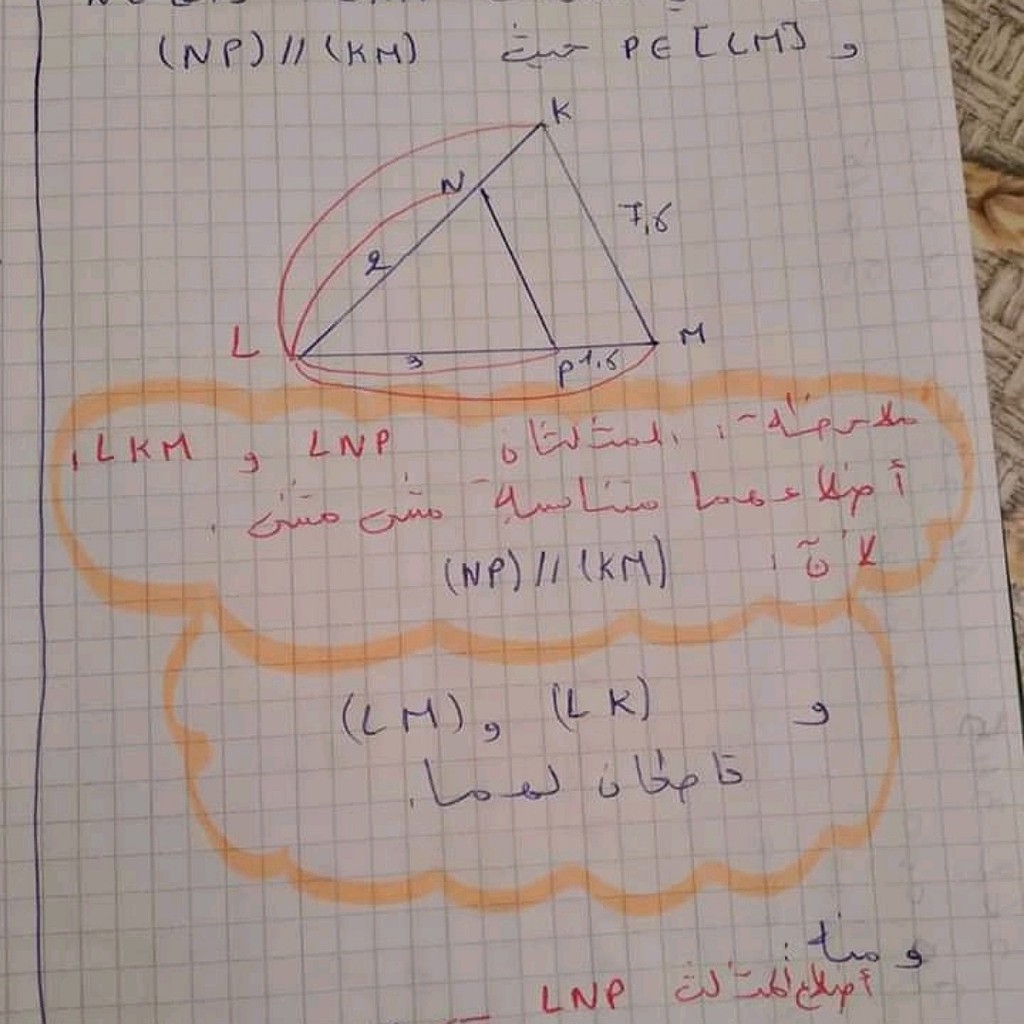 و P∈[LM] حيث (NP)//(KM)
K
N
7,5
2
L
M
3
P
1,5
ملاحظة: المثلثان LNP و LKM،
أضلاعهما متناسبة مثنى مثنى.
لأنّ: (NP)//(KM)
و (LK) و (LM)
قاطعان لهما.
و منه:
أضلاع المثلث LNP